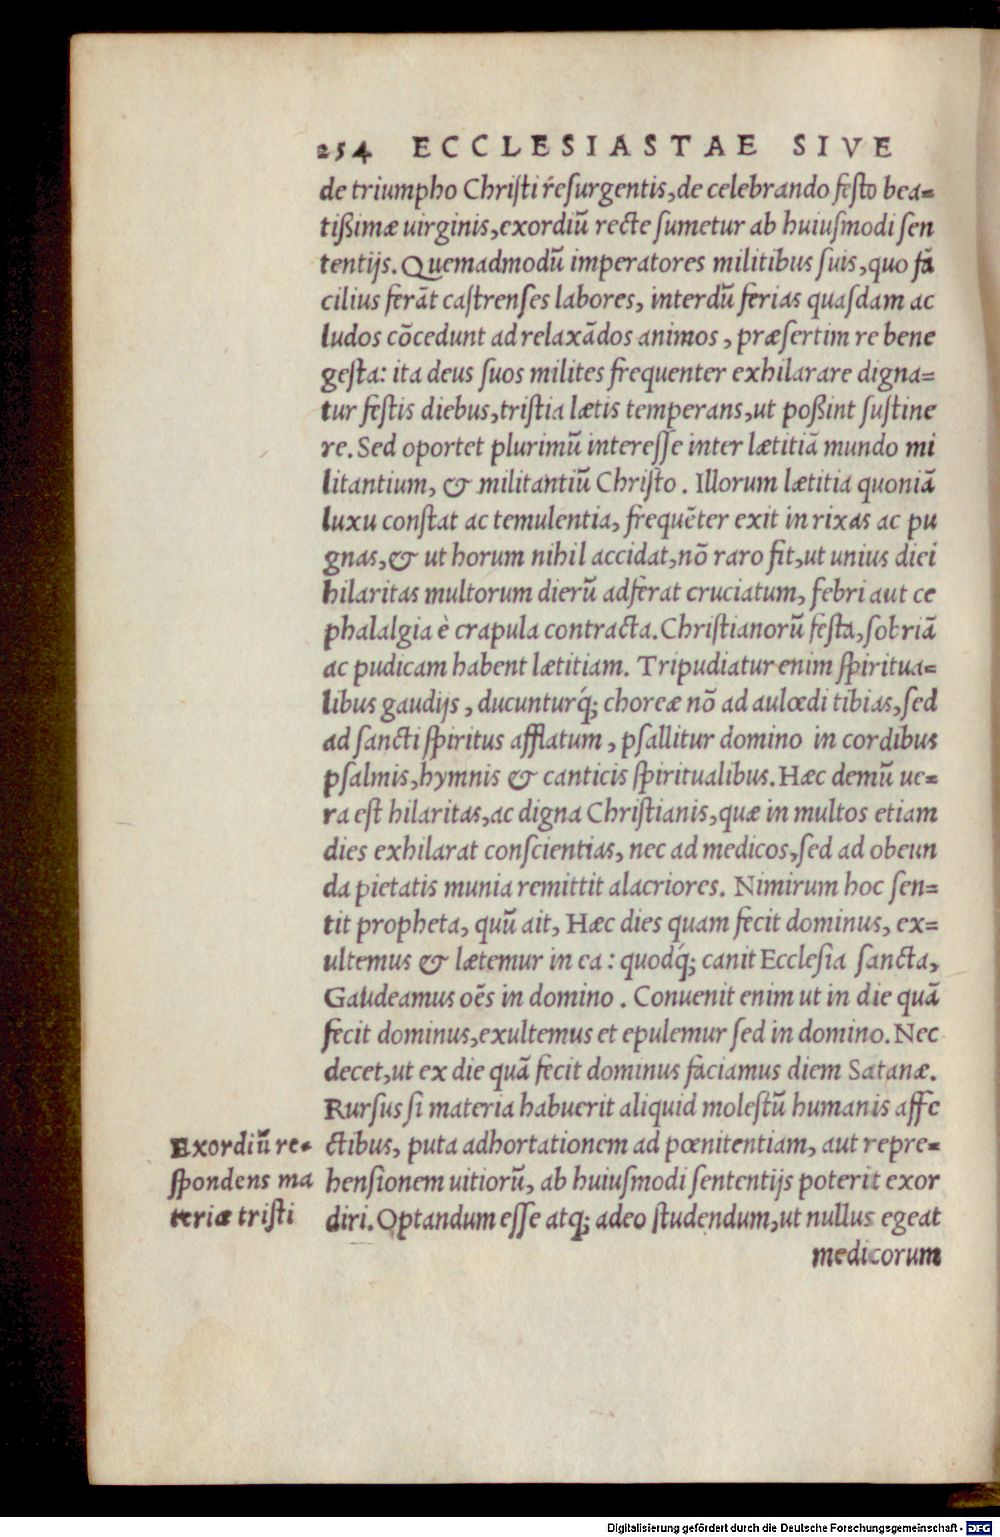 254 ECCLESIASTAE SIVE
de triumpho Chriſti reſurgentis, de celebrando feſto bea=
tißimæ uirginis, exordiū recte ſumetur ab huiuſmodi ſen
tentijs. Quemadmodū imperatores militibus ſuis, quo fa
cilius ferāt caſtrenſes labores, interdū ferias quaſdam ac
ludos cōcedunt ad relaxādos animos, præſertim re bene
geſta: ita deus ſuos milites frequenter exhilarare digna=
tur feſtis diebus, triſtia lætis temperans, ut poßint ſuſtine
re. Sed oportet plurimū intereſſe inter lætitiā mundo mi
litantium, & militantiū Chriſto. Illorum lætitia quoniā
luxu conſtat ac temulentia, frequēter exit in rixas ac pu
gnas, & ut horum nihil accidat, nō raro fit, ut unius diei
hilaritas multorum dierū adferat cruciatum, febri aut ce
phalalgia è crapula contracta. Chriſtianorū feſta, ſobriā
ac pudicam habent lætitiam. Tripudiatur enim ſpiritua=
libus gaudijs, ducunturq́; choreæ nō ad aulœdi tibias, ſed
ad ſancti ſpiritus afflatum, pſallitur domino in cordibus
pſalmis, hymnis & canticis ſpiritualibus. Hæc demū ue=
ra eſt hilaritas, ac digna Chriſtianis, quæ in multos etiam
dies exhilarat conſcientias, nec ad medicos, ſed ad obeun
da pietatis munia remittit alacriores. Nimirum hoc ſen=
tit propheta, quū ait, Hæc dies quam fecit dominus, ex=
ultemus & lætemur in ea: quodq́; canit Eccleſia ſancta,
Gaudeamus oēs in domino. Conuenit enim ut in die quā
fecit dominus, exultemus et epulemur ſed in domino. Nec
decet, ut ex die quā fecit dominus faciamus diem Satanæ.
Rurſus ſi materia habuerit aliquid moleſtū humanis affe
ctibus, puta adhortationem ad pœnitentiam, aut repre=
henſionem uitiorū, ab huiuſmodi ſententijs poterit exor
diri. Optandum eſſe atq; adeo ſtudendum, ut nullus egeat
medicorum
Exordiū re=
ſpondens ma
teriæ triſti
Digitalisierung gefördert durch die Deutsche Forschungsgemeinschaft - DFG